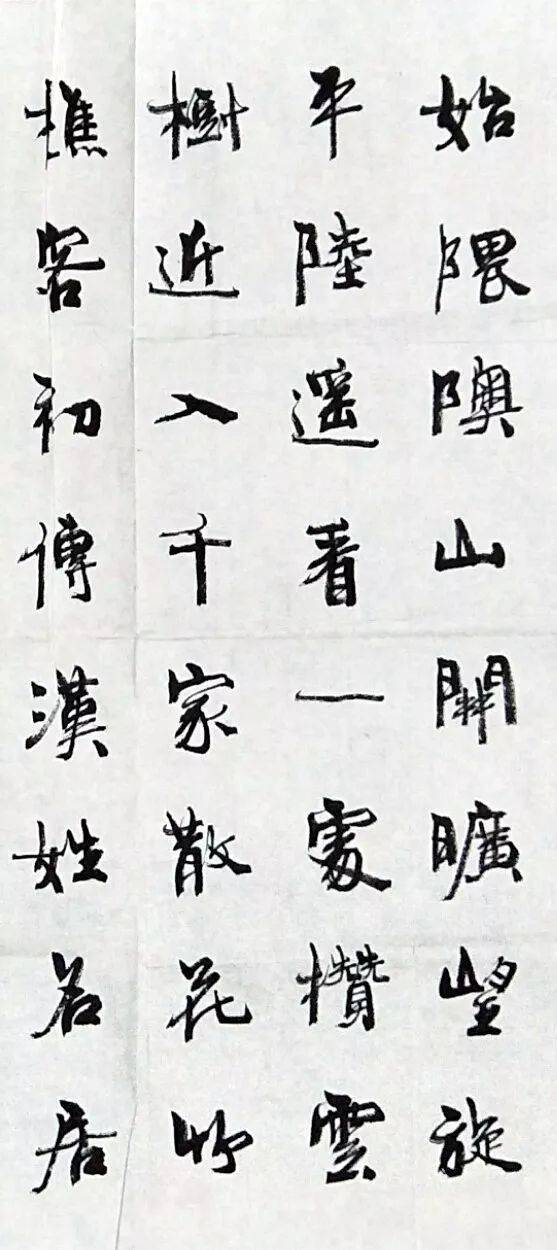 始隈隩山開曠望旋
平陸遥看一處攢雲
樹近入千家散花竹
樵客初傳漢姓名居